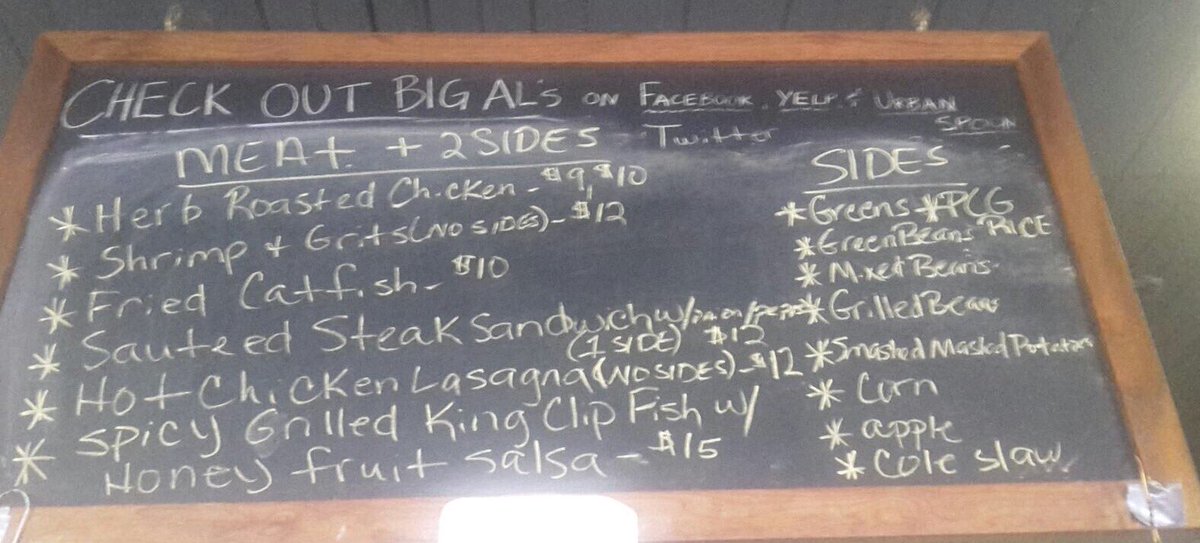 CHECK OUT BIG AL's ON FACEBOOK, YELP & URBAN
SPOON
Twitter
MEAt + 2 SIDES
* Herb Roasted Chicken - $9, $10
* Shrimp + Grits (NO SIDES) - $12
* Fried Catfish - $10
* Sauteed Steak Sandwich w/
(1 SIDE) $12
* Hot Chicken Lasagna (NO SIDES) - $12
* Spicy Grilled King Clip Fish w/
Honey fruit salsa - $15
SIDES
* Greens * PCG
* Green Beans RICE
* Mixed Beans
* Grilled Beans
* Smashed Masked Potatoes
* Corn
* apple
* Cole slaw